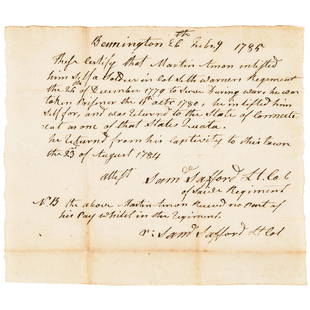 Bennington 26th Febry 1785
These certify that Martin Amon inlisted
him Self a Soldier in Col Seth Warners Regiment
the 26 of December 1779 to Serve During war, he was
taken Prisoner the 11th octr 1780, he inlisted him
Self for, and was Returned to the State of Connecti-
cut as one of that States Quota.
he Returned from his Captivity to this town
the 23d of August 1784
attest Saml Safford Lt. Col
of Said Regiment
N.B the above Martin Amon Receved no part of
his Pay whilst in the Regiment.
Saml Safford Lt Col